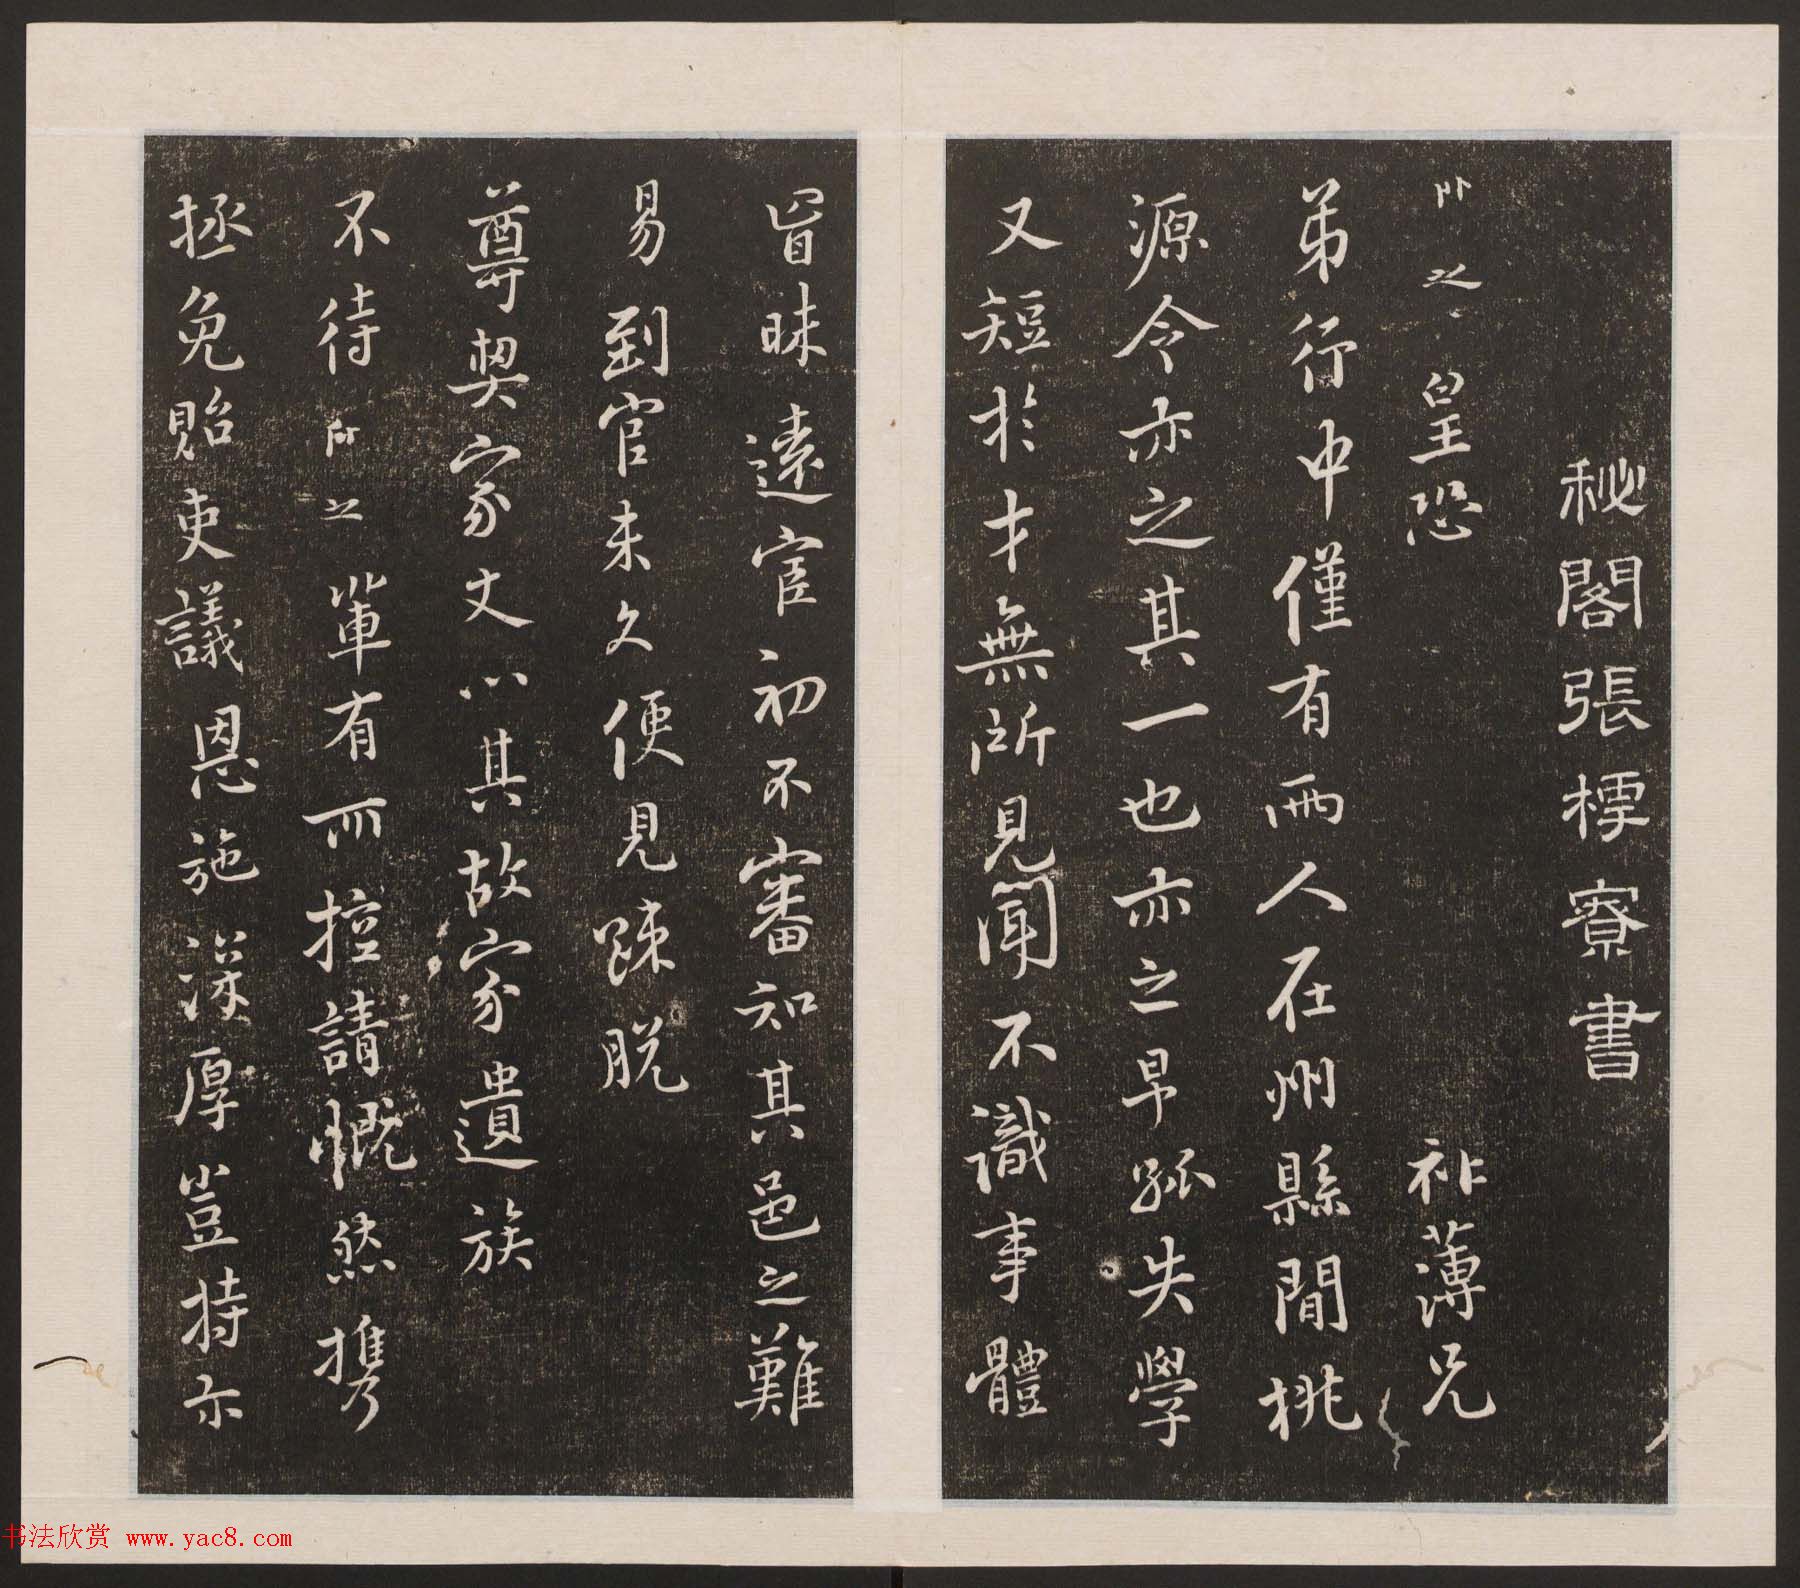 秘閣張樗寮書
即之皇恐 祚薄兄
弟行中僅有兩人在州縣間桃
源令亦之其一也亦之早孤失學
又短於才無所見聞不識事體
冒昧遠宦初不審知其邑之難
易到官未久便見疎脫
尊契家丈以其故家遺族
不待即之輩有所控請慨然攜
拯免貽吏議恩施深厚豈特亦
书法欣赏 www.yac8.com